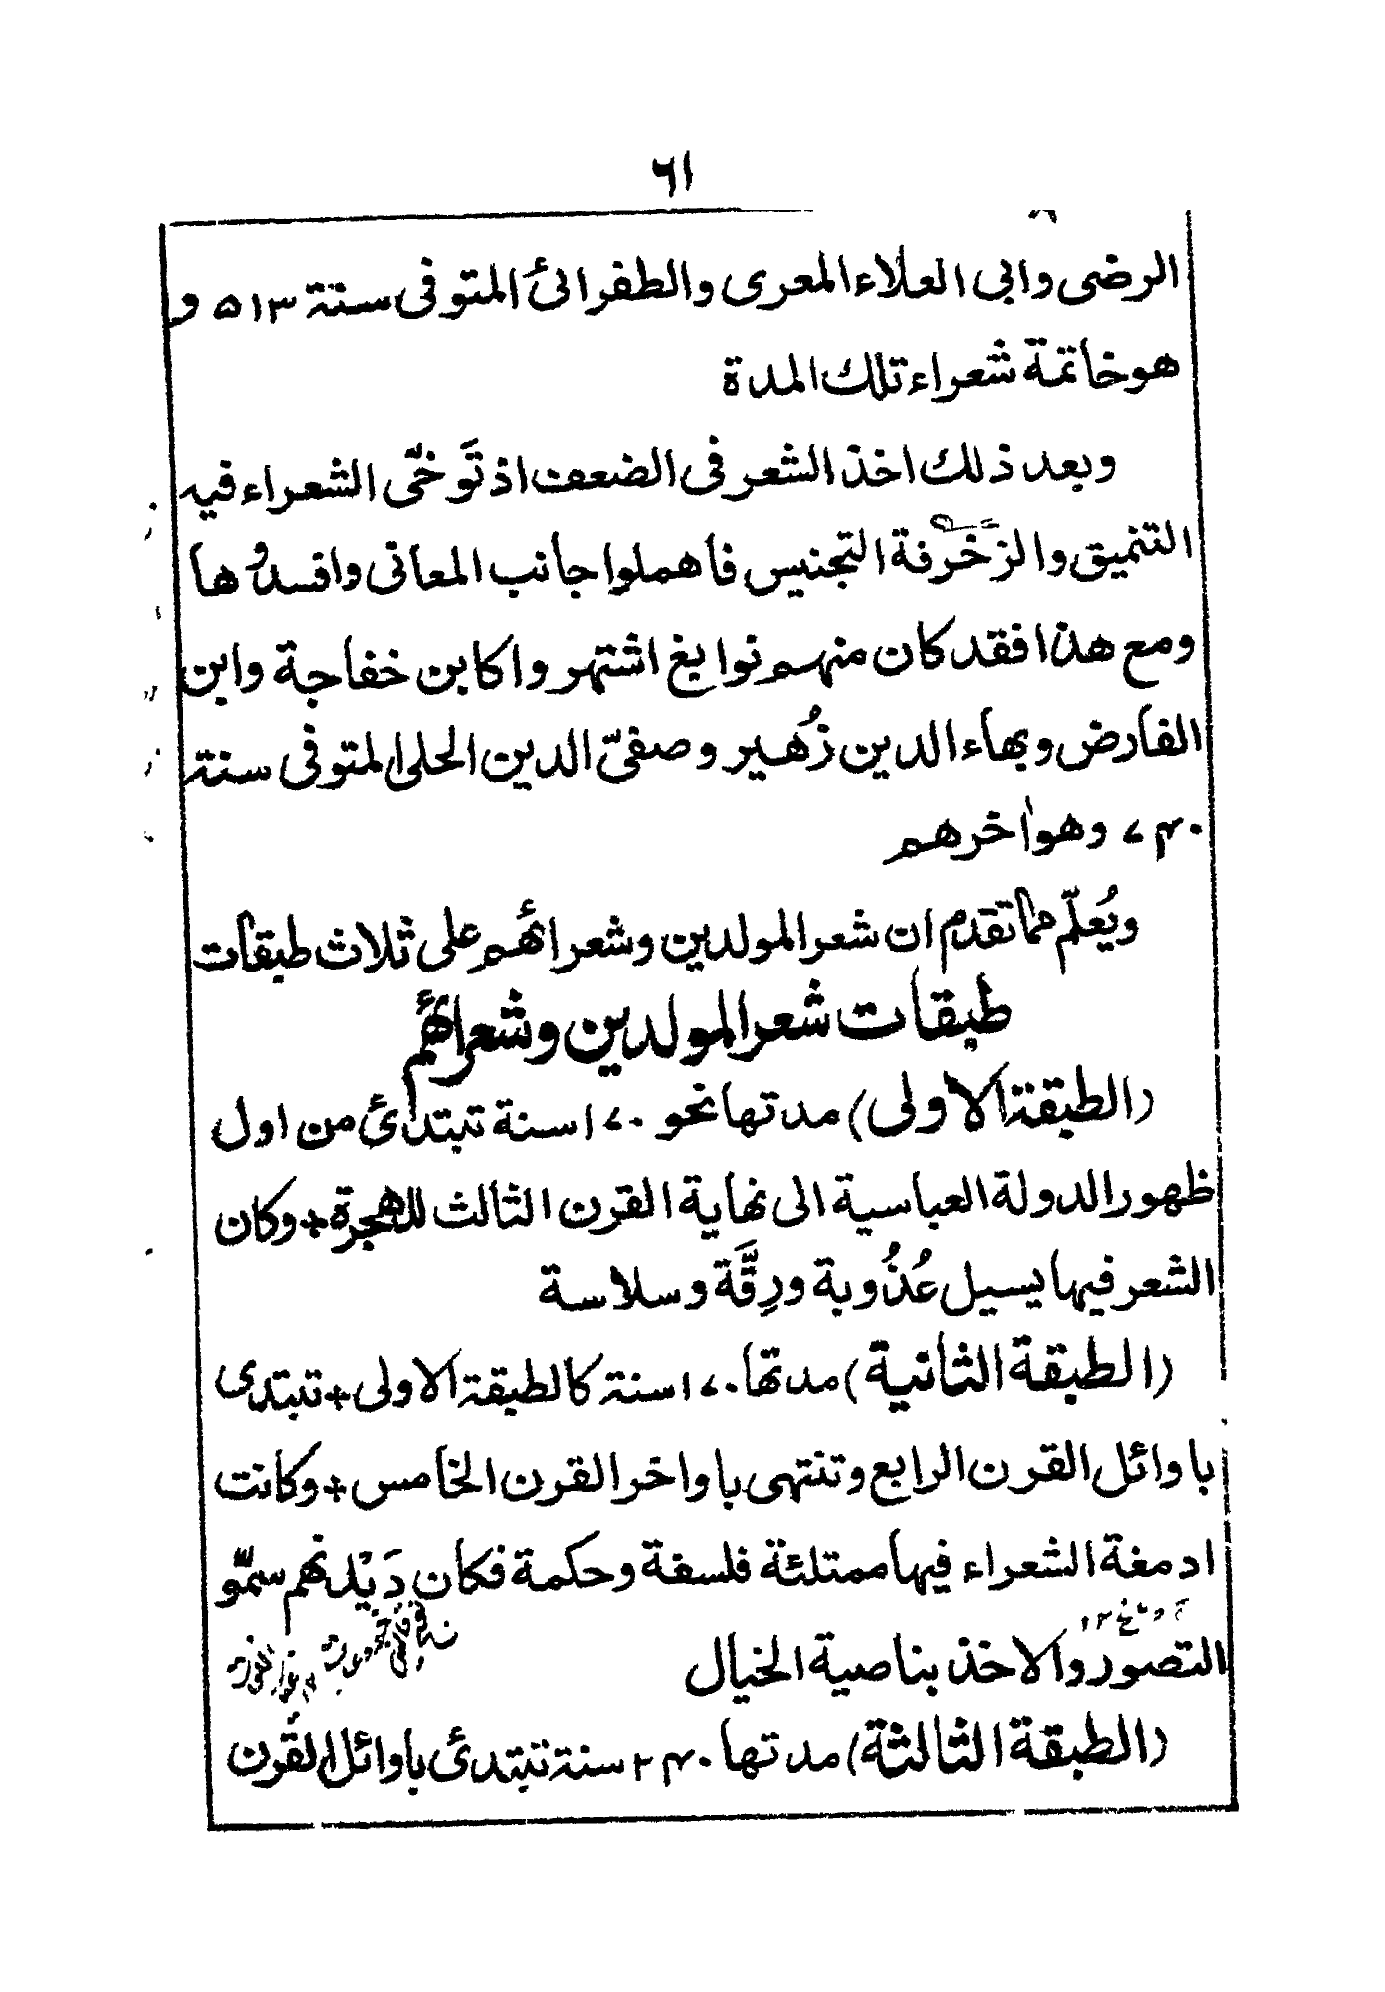 ٦١
الرضى وابى العلاء المعرى والطفرائى المتوفى سنة ٥١٣ و
هو خاتمة شعراء تلك المدة
وبعد ذلك اخذ الشعر فى الضعف اذ تَوخّى الشعراء فيه
التنميق والزخرفة التجنيس فاهملوا جانب المعانى وافسدُوها
ومع هذا فقد كان منهم نوابغ اشتهروا كابن خفاجة وابن
الفارض وبهاء الدين زُهير وصفىّ الدين الحلى المتوفى سنة
٧٤٠ وهو اٰخرهم
ويُعلّم مما تقدم ان شعر المولدين وشعرائهم على ثلاث طبقات
طبقات شعر المولدين وشعرائهم
(الطبقة الاولى) مدتها نحو ١٧٠ سنة تبتدئ من اول
ظهور الدولة العباسية الى نهاية القرن الثالث للهجرة + وكان
الشعر فيها يسيل عُذُوبة ورِقَّة وسلاسة
(الطبقة الثانية) مدتها ١٧٠ سنة كالطبقة الاولى + تبتدى
باوائل القرن الرابع وتنتهى باواخر القرن الخامس + وكانت
ادمغة الشعراء فيها ممتلئة فلسفة وحكمة فكان دَيْدنهم سموّ
التصوّر والاخذ بناصية الخيال
(الطبقة الثالثة) مدتها ٢٤٠ سنة تبتدئ باوائل القرن